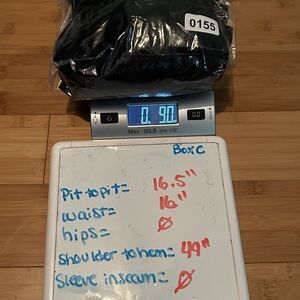 0155
0. 9.0
Max : 50LB d=0.1oz
Box C
Pit to pit = 16.5"
waist = 16"
hips = Ø
shoulder to hem = 49"
Sleeve inseam = Ø